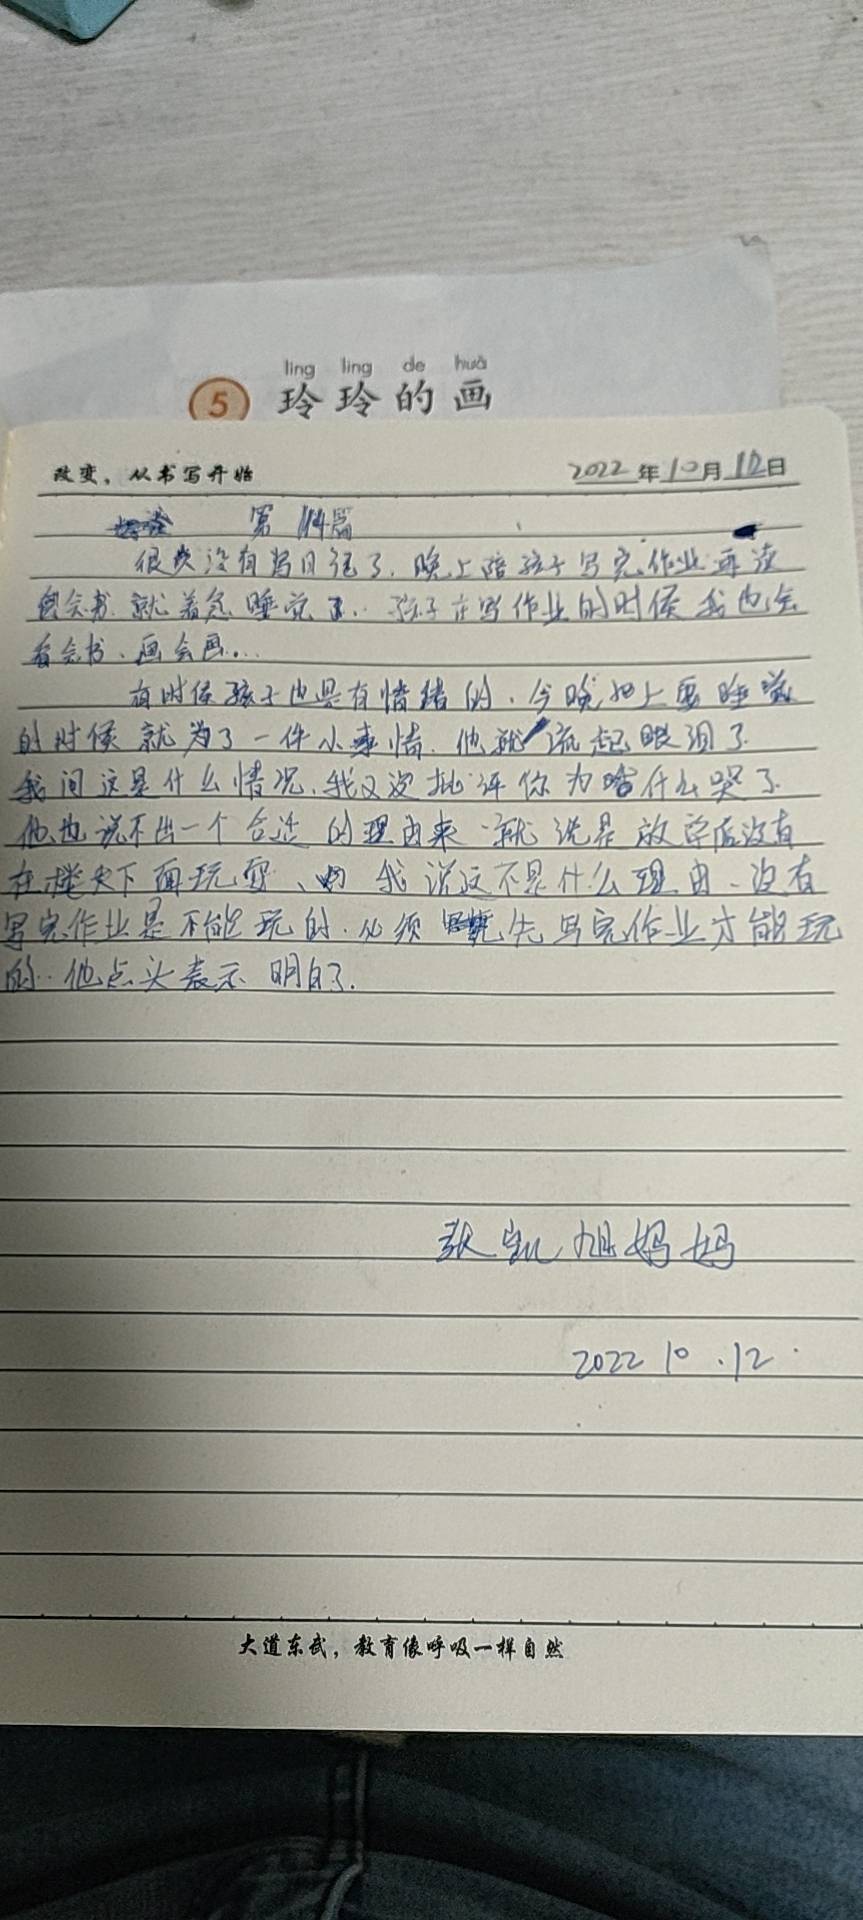 líng líng de huà
5 玲玲的画
改变，从书写开始 2022年10月12日
第114篇
很久没有写日记了.晚上陪孩子写完作业再读
会书.就着急睡觉了..孩子在写作业的时候我也会
看会书、画会画...
有时候孩子也是有情绪的.今晚上要睡觉
的时候就为了一件小事情.他就流起眼泪了.
我问这是什么情况.我又没批评你为什么哭了.
他也说不出一个合适的理由来.就说是放学后没有
在楼下面玩耍、我说这不是什么理由、没有
写完作业是不能玩的.必须先写完作业才能玩
的..他点头表示明白了.
张凯旭妈妈
2022 10.12.
大道东武，教育像呼吸一样自然